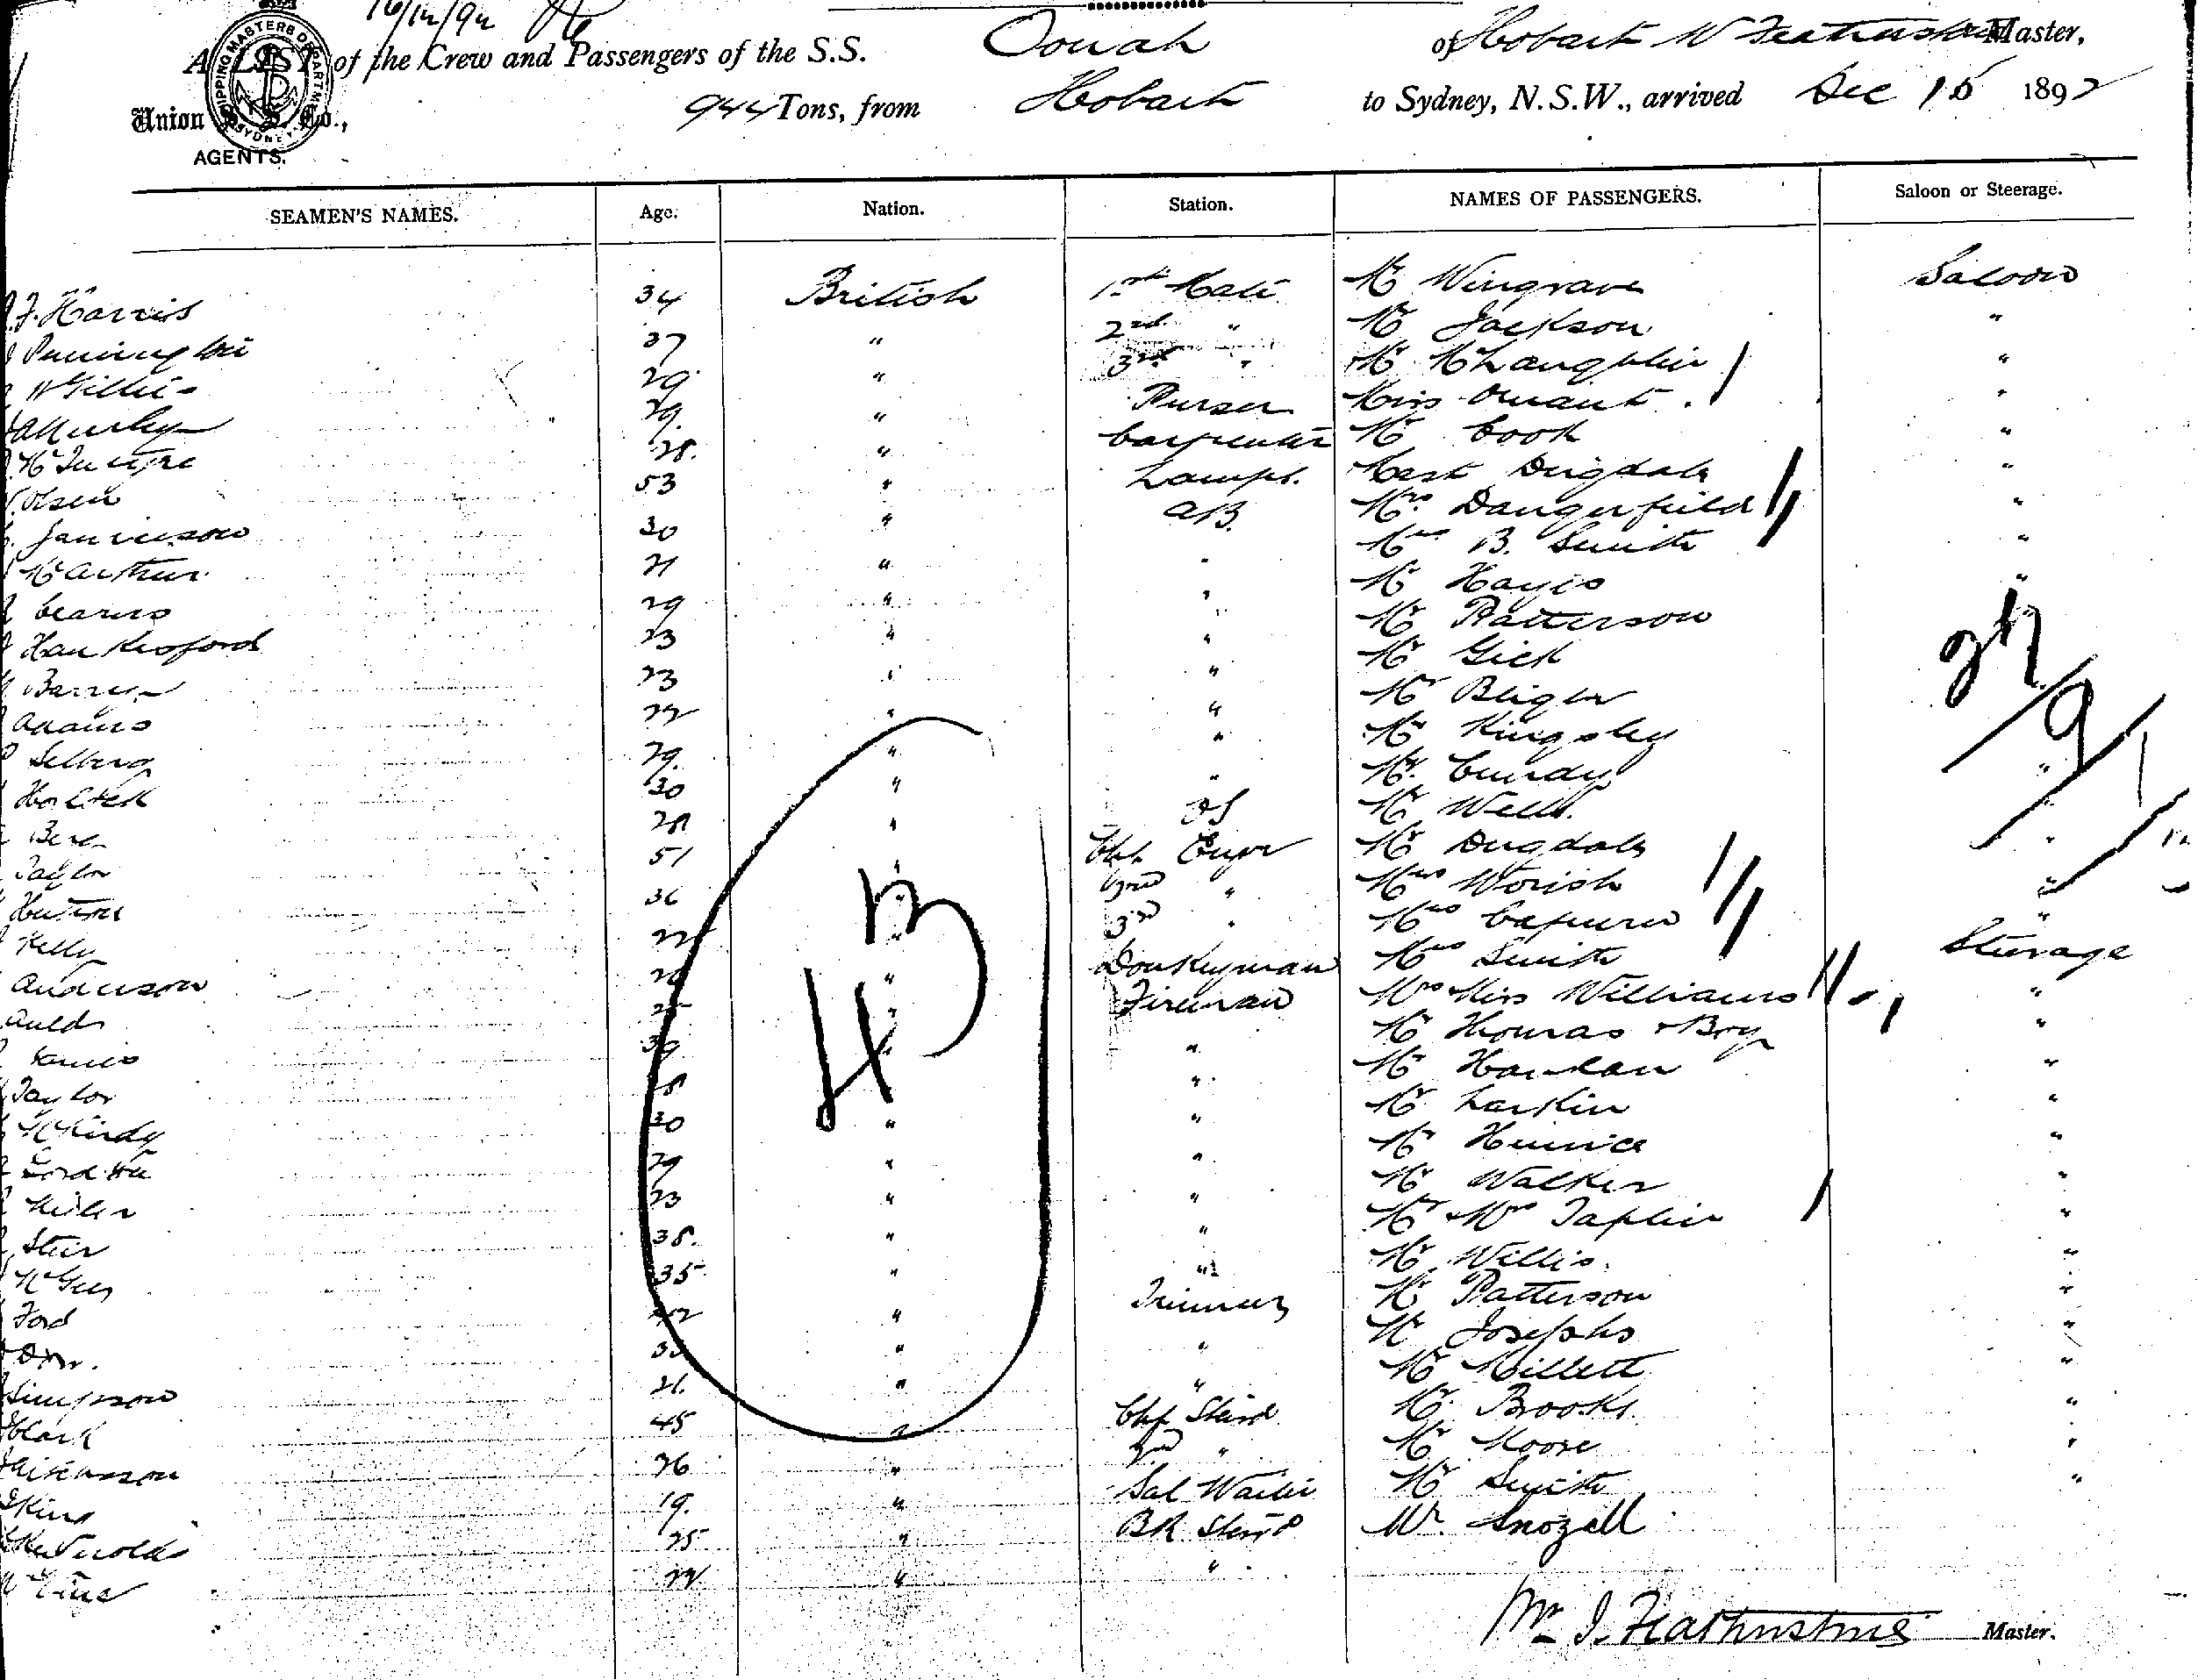 16/12/92
A LIST of the Crew and Passengers of the S.S. Oonah of Hobart W Featherstone Master,
Union S. S. Co., 944 Tons, from Hobart to Sydney, N.S.W., arrived Dec 15 1892
AGENTS.
SHIPPING MASTERS DEPARTMENT SYDNEY
SEAMEN'S NAMES. Age. Nation. Station. NAMES OF PASSENGERS. Saloon or Steerage.
J. Harris 34 British 1st Mate Mr Wingrave Saloon
Pennington 37 " 2nd " Mr Jackson "
Gillies 29 " 3rd " Mr McLaughlin "
29 " Purser Miss "
McIntyre 28 " Carpenter Mr Cook "
Olsen 53 " Lamps. Mast Dugdale "
Jamieson 30 " AB. Mrs Dangerfield "
McArthur 21 " " Mrs B. Smith "
Cearns 29 " " Mr Hayes "
Hankesford 23 " " Mr Patterson
Barry 23 " " Mr Gick
Adams 22 " " Mr Bligh
Selberg 29 " " Mr Kingsley
30 " " Mr Cundy "
28 " OS Mr Wells "
Taylor 51 " Chf. Engr Mr Dugdale "
36 " 2nd " Mrs Worish "
Kelly 22 " 3rd " Mrs "
Anderson " Donkeyman Mrs Smith Steerage
Auld 25 " Fireman Mrs Miss Williams "
39 " " Mr Thomas & Boy "
Taylor " " Mr Hanlan "
McKirdy 30 " " Mr Larkin "
29 " " Mr "
23 " " Mr Walker "
38 " " Mr & Mrs Taplin "
McGee 35 " " Mr Willis "
Ford 42 " Trimmer Mr Patterson "
Orr. " " Mr Josephs "
Simpson 21 " " Mr Millett "
Clark 45 " Chf Stewd Mr Brooks "
26 " 2nd " Mr Moore "
King 19 " Sal Waiter Mr Smith "
25 " BR Stewd Mr Snozell
22 " "
43
Featherstone Master.